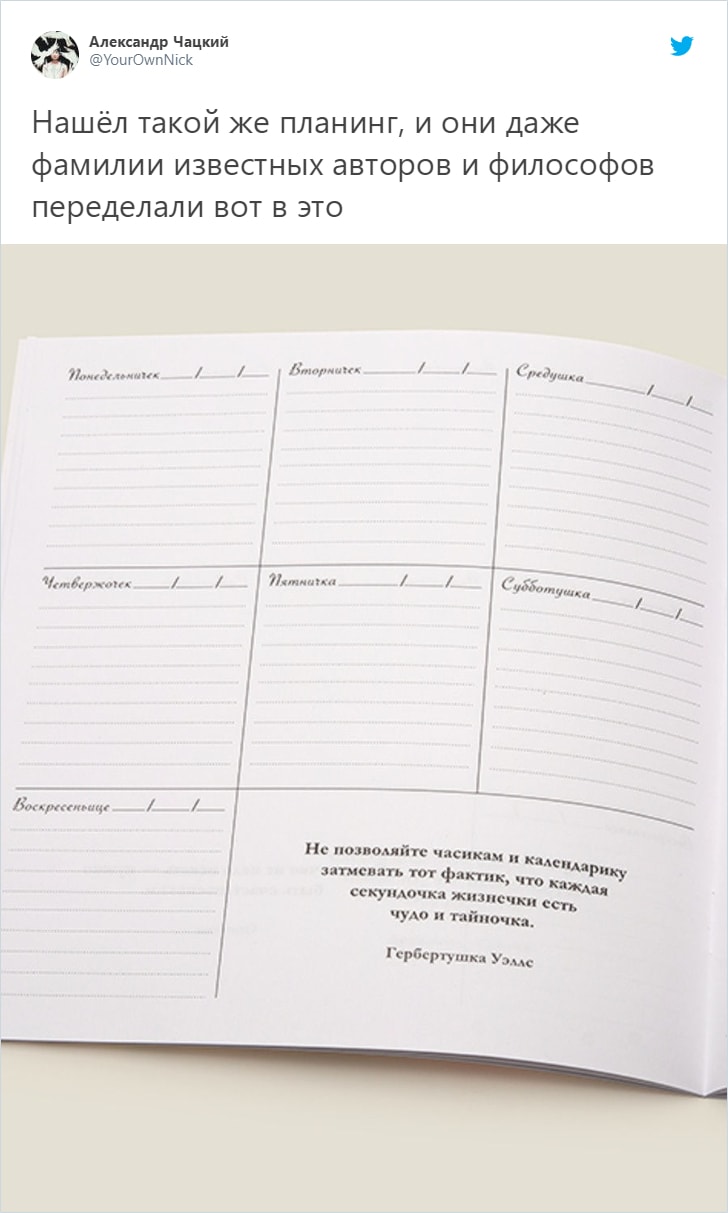 Александр Чацкий
@YourOwnNick
Нашёл такой же планинг, и они даже
фамилии известных авторов и философов
переделали вот в это
Понедельничек / /
Вторничек / /
Средушка / /
Четвержочек / /
Пятничка / /
Субботушка / /
Воскресеньице / /
Не позволяйте часикам и календарику
затмевать тот фактик, что каждая
секундочка жизнечки есть
чудо и тайночка.
Гербертушка Уэллс